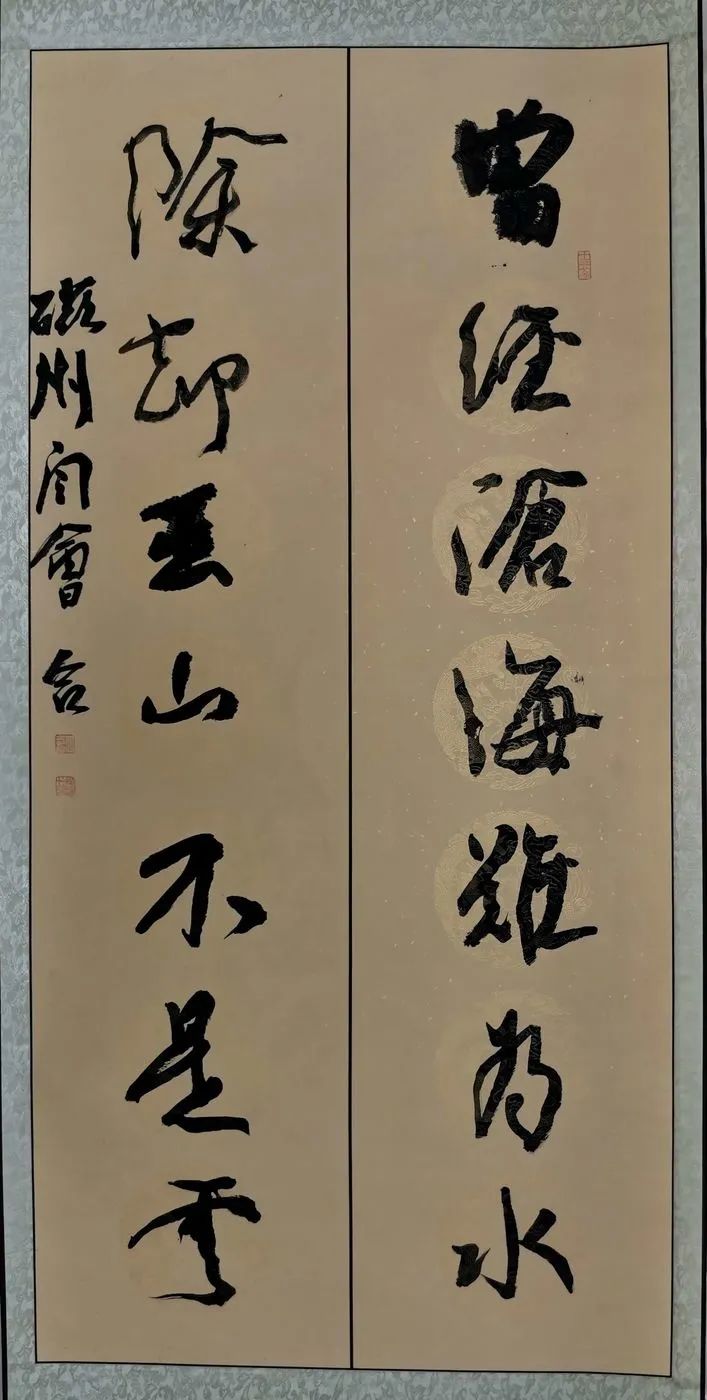 曾經滄海難為水
除却巫山不是雲
磁州閆會合